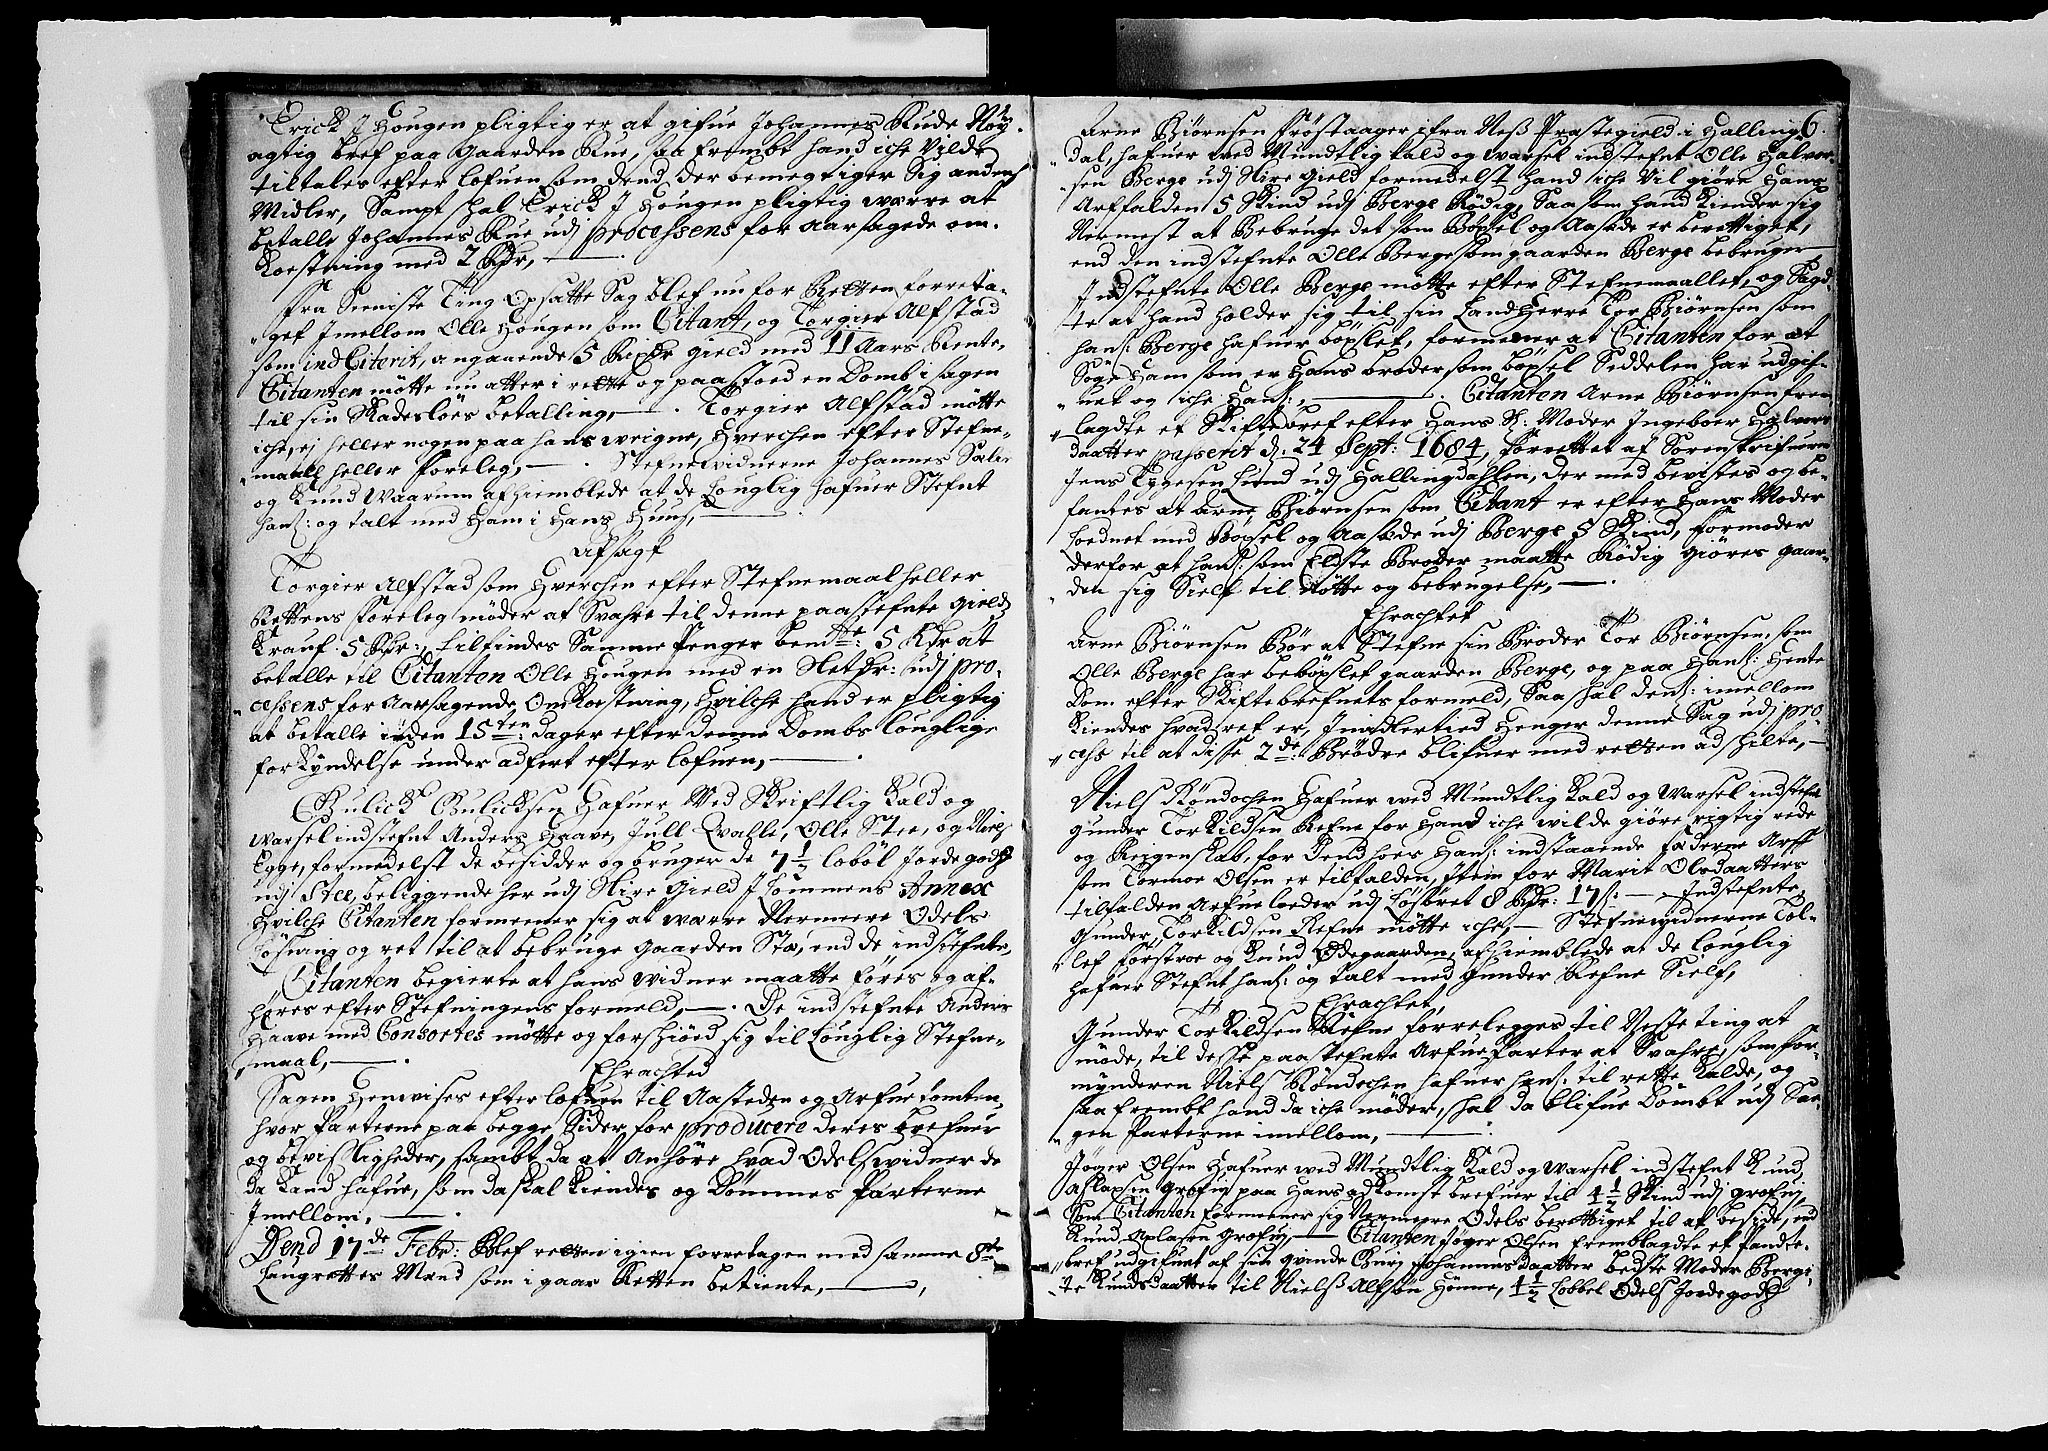 Erick J Hougen pligtig er at gifue Johannes Rude Nøy
agtig bref paa Gaarden Rue, saa frembt hand iche Vilde
tiltales efter lofuen som dend der bemegtiger Sig andens
Midler, Sampt skal Erick J Hougen pligtig wærre at
betalle Johannes Rue udj processens for aarsagede om-
koestning med 2 Rdr,
Fra Seeniste Ting Opsatte Sag blef nu for Retten forreta-
get Jmellom Olle Hougen som Citant, og Torgier Alfstad
som ind Citerit, angaaende 5 Rixdr gield med 11 Aars Rente,
Citanten møtte nu atter i rette og paastoed en Domb i sagen
til sin Skadesløes betalling, Torgier Alfstad møtte
iche, ej heller nogen paa hans weigne, Hverchen efter Stefne-
maall heller foreleg, Stefnewidnerne Johannes Sæle
og Knud Waarum afhiemblede at de Louglig hafuer Stefnt
hans: og talt med Ham i Hans Huus,
Afsagt
Torgier Alfstad som Hverchen efter Stefnemaal heller
Rettens foreleg møder at Svahre til denne paastefnte gields
Krauf 5 Rdr:, tilfindes Samme Penger bemte: 5 Rdr at
betalle til Citanten Olle Hougen med en Slet dr: udj pro-
cessens for Aarsagende Omkoestning, Hvilche hand er pligtig
at betalle inden 15ten: Dager efter denne Dombs louglige
forkyndelse under adfert efter lofuen,
Gulick Gulicksen Hafuer Ved Skriftlig Kald og
Warsel indstefnt Anders Haave, Jull Qvalle, Olle Stee, og Niels
Egge, formedelst de besidder og bruger de 7½ lobøl Jordegods
udj Stee, beliggende her udj Slire gield J Lommens Annex
Hvilche Citanten formeener sig at warre Nermeere Odels
Løsning og ret til at bebruge Gaarden Stee, end de indstefnte,
Citanten begierte at hans widner maatte føres og af-
høres efter Stefningens formeld, De indstefnte Anders
Haave med Consortes møtte og forskiød sig til Louglig Stefne-
maal,
Ehrachted
Sagen Henvises efter lofuen til Aasteden og Arfuetomten,
hvor Parterne paa begge Sider for producere deres brefuer
og bevissligheder, sambt da at Anhøre hvad Odelswidner de
da kand hafue, som da skal kiendes og Dømmes Parterne
Jmellom,
Dend 17de Febr: Blef retten igien forretagen med samme 8te
Laugrettes Mænd som i gaar Retten betiente,
6.
Arne Biørnsen Frøstaager ifra Neß Præstegield i Halling
dal, hafuer wed Mundtlig kald og warsel indstefnt Olle Halvor
sen Berge udj Slire gield formedelst hand iche Vil giøre Hans
Arffalden 5 Skind udj Berge Rødig, Saasom hand kiender sig
Nermest at Bebruge det som Bøxel og Aasæde er berettiget,
end den indstefnte Olle Berge som gaarden Berge bebruger
Jndstefnte Olle Berge møtte efter Stefnemaallet, og Sagd-
te at hand holder sig til sin Landherre Tor Biørnsen som
hans: Berge hafuer bøxlet, formener at Citanten for at
Søge Ham som er Hans broder som bøxel Seddelen har udgif-
uet og iche Hans:, Citanten Arne Biørnsen frem
lagdte et Skiftebref efter Hans Sl: Moder Ingeboer Halvors
daatter passerit d: 24 Sept: 1684, forrettet af Sorenskrifueren
Jens Tygesen Lund udj Hallingdahlen, der med bevistes og be-
fantes at Arne Biørnsen som Citant er efter Hans Moder
Loednet med Bøxel og Aasæde udj Berge 5 Skind, formoder
derfor at hans: som Eldste Broder maatte Rødig Giøres gaar-
den sig Sielf til nøtte og bebrugelse,
Ehrachtet
Arne Biørnsen Bør at Stefne sin Broder Tor Biørnsen, som
Olle Berge har bebøxlet gaarden Berge, og paa Hans: Hente
Dom efter Skiftebrefuets formeld, Saa skal dens: imellom
kiendes hvad ret er, Jmidlertied Henger denne Sag udj pro-
cess til at disse 2de: Brødre blifuer med retten adskilte,
Niels Røndochen Hafuer wed Mundtlig kald og Warsel indstefnt
Gunder Torkildsen Refne for Hand iche wilde giøre rigtig rede
og Reigenskab, for Dend hoes Hans: indstaaende fæderne Arff
som Tormoe Olsen er tilfalden, Item for Marit Olsdaatters
tilfalden Arfue loeder udj Løsøret 8 Rdr: 17 s: Indstefnte
Gunder Torkildsen Refne møtte iche, Stefnewidnerne Tol-
lef Førstroe og Knud Ødegaarden, afhiemblede at de Louglig
hafuer Stefnt hans: og talt med Gunder Refne Sielf,
Ehrachtet,
Gunder Torkildsen Refne forrelegges til Neste ting at
møde, til desse paastefnte Arfue Parter at Svahre, som for-
mynderen Niels Røndochen hafuer hans: til rette kalde, og
saa frembt hand da iche møder, skal da blifue Dombt udj Sa-
gen Parterne imellom,
Jøger Olsen Hafuer wed Mundtlig Kald og Warsel indstefnt Knud
Aslaxsen Grøfuy paa Hans adkomst brefuer til 4½ Skind udj Grøfuy
Som Citanten formeener sig Nermere Odels berettiget til at beside, end
Knud Aslasen Grøfuy, Citanten Jøger Olsen fremblagdte et Pandte
bref udgifuet af sin qvinde Gurj Johannesdaatter bedste Moder Bergi-
te Knudsdaatter til Nielß Alfsøn Hønne, 4½ Lobbel Odels Jordegods